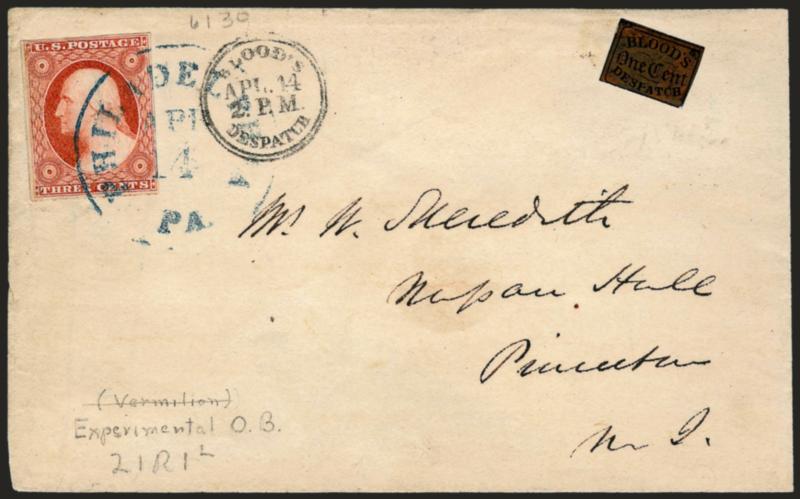 6130
U.S. POSTAGE
THREE CENTS
PHILADELPHIA
APR
14
PA
BLOOD'S
APL. 14
2 P.M.
DESPATCH
BLOOD'S
One Cent
DESPATCH
Mr. W. Meredith
Nassau Hall
Princeton
N J.
(Vermilion)
Experimental O.B.
21R1L